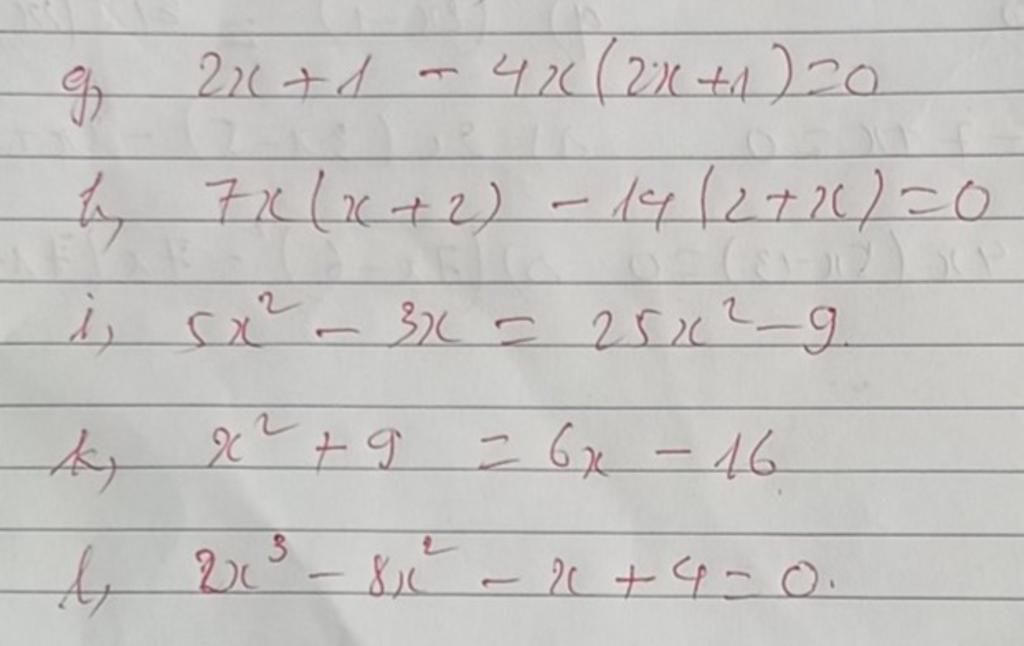 g, 2x + 1 - 4x(2x+1) = 0
h, 7x(x+2) - 14(2+x) = 0
i, 5x² - 3x = 25x² - 9.
k, x² + 9 = 6x - 16.
l, 2x³ - 8x² - x + 4 = 0.